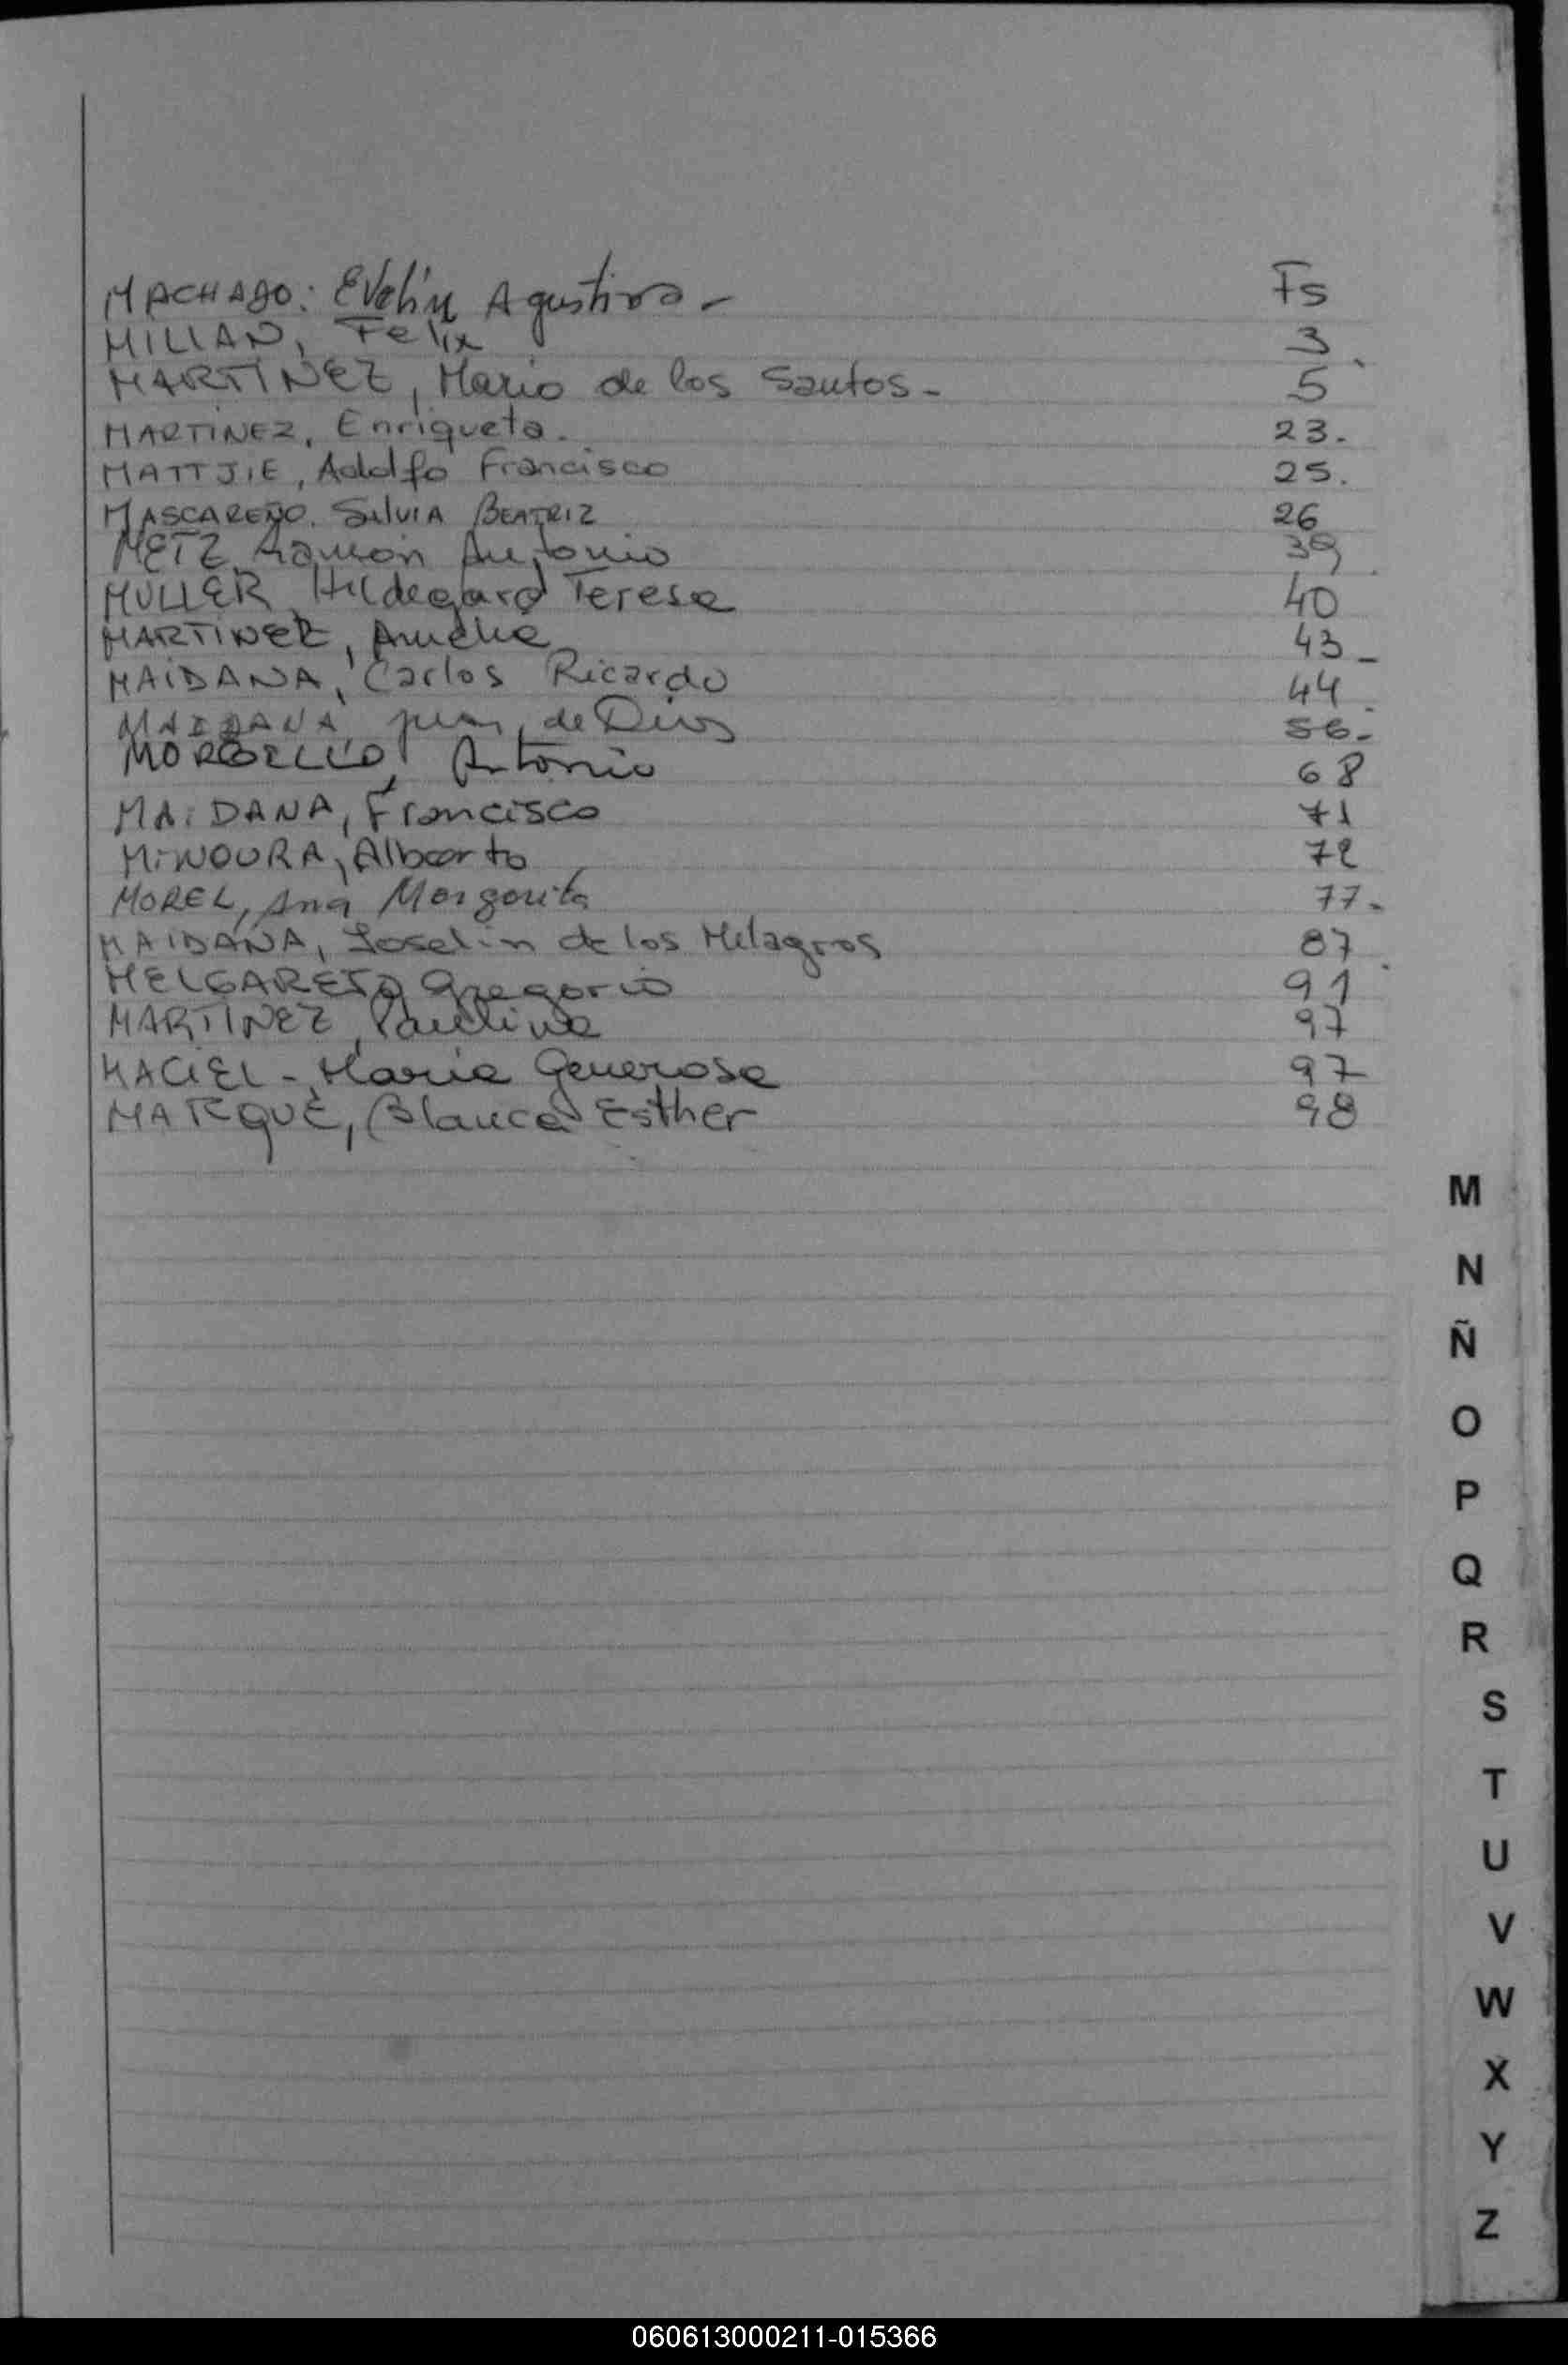 MACHADO: Evelin Agustina - Fs
MILLAN, Felix 3
MARTINEZ, Mario de los Santos - 5
MARTINEZ, Enriqueta. 23.
MATTJIE, Adolfo Francisco 25.
MASCAREÑO. SILVIA BEATRIZ 26
METZ, Ramón Antonio 39
MULLER, Hildegard Teresa 40
MARTINEZ, Amelia 43 -
MAIDANA, Carlos Ricardo 44
MAIDANA, Juan de Dios 56.-
Antonio 68
MAIDANA, Francisco 71
MINOURA, Alberto 72
MOREL, Ana Margarita 77.-
MAIDANA, Joselin de los Milagros 87
MELGAREJO Gregorio 91
MARTINEZ, Paulina 97
MACIEL - Maria Generosa 97
MARQUE, Blanca Esther 98
M
N
Ñ
O
P
Q
R
S
T
U
V
W
X
Y
Z
060613000211-015366